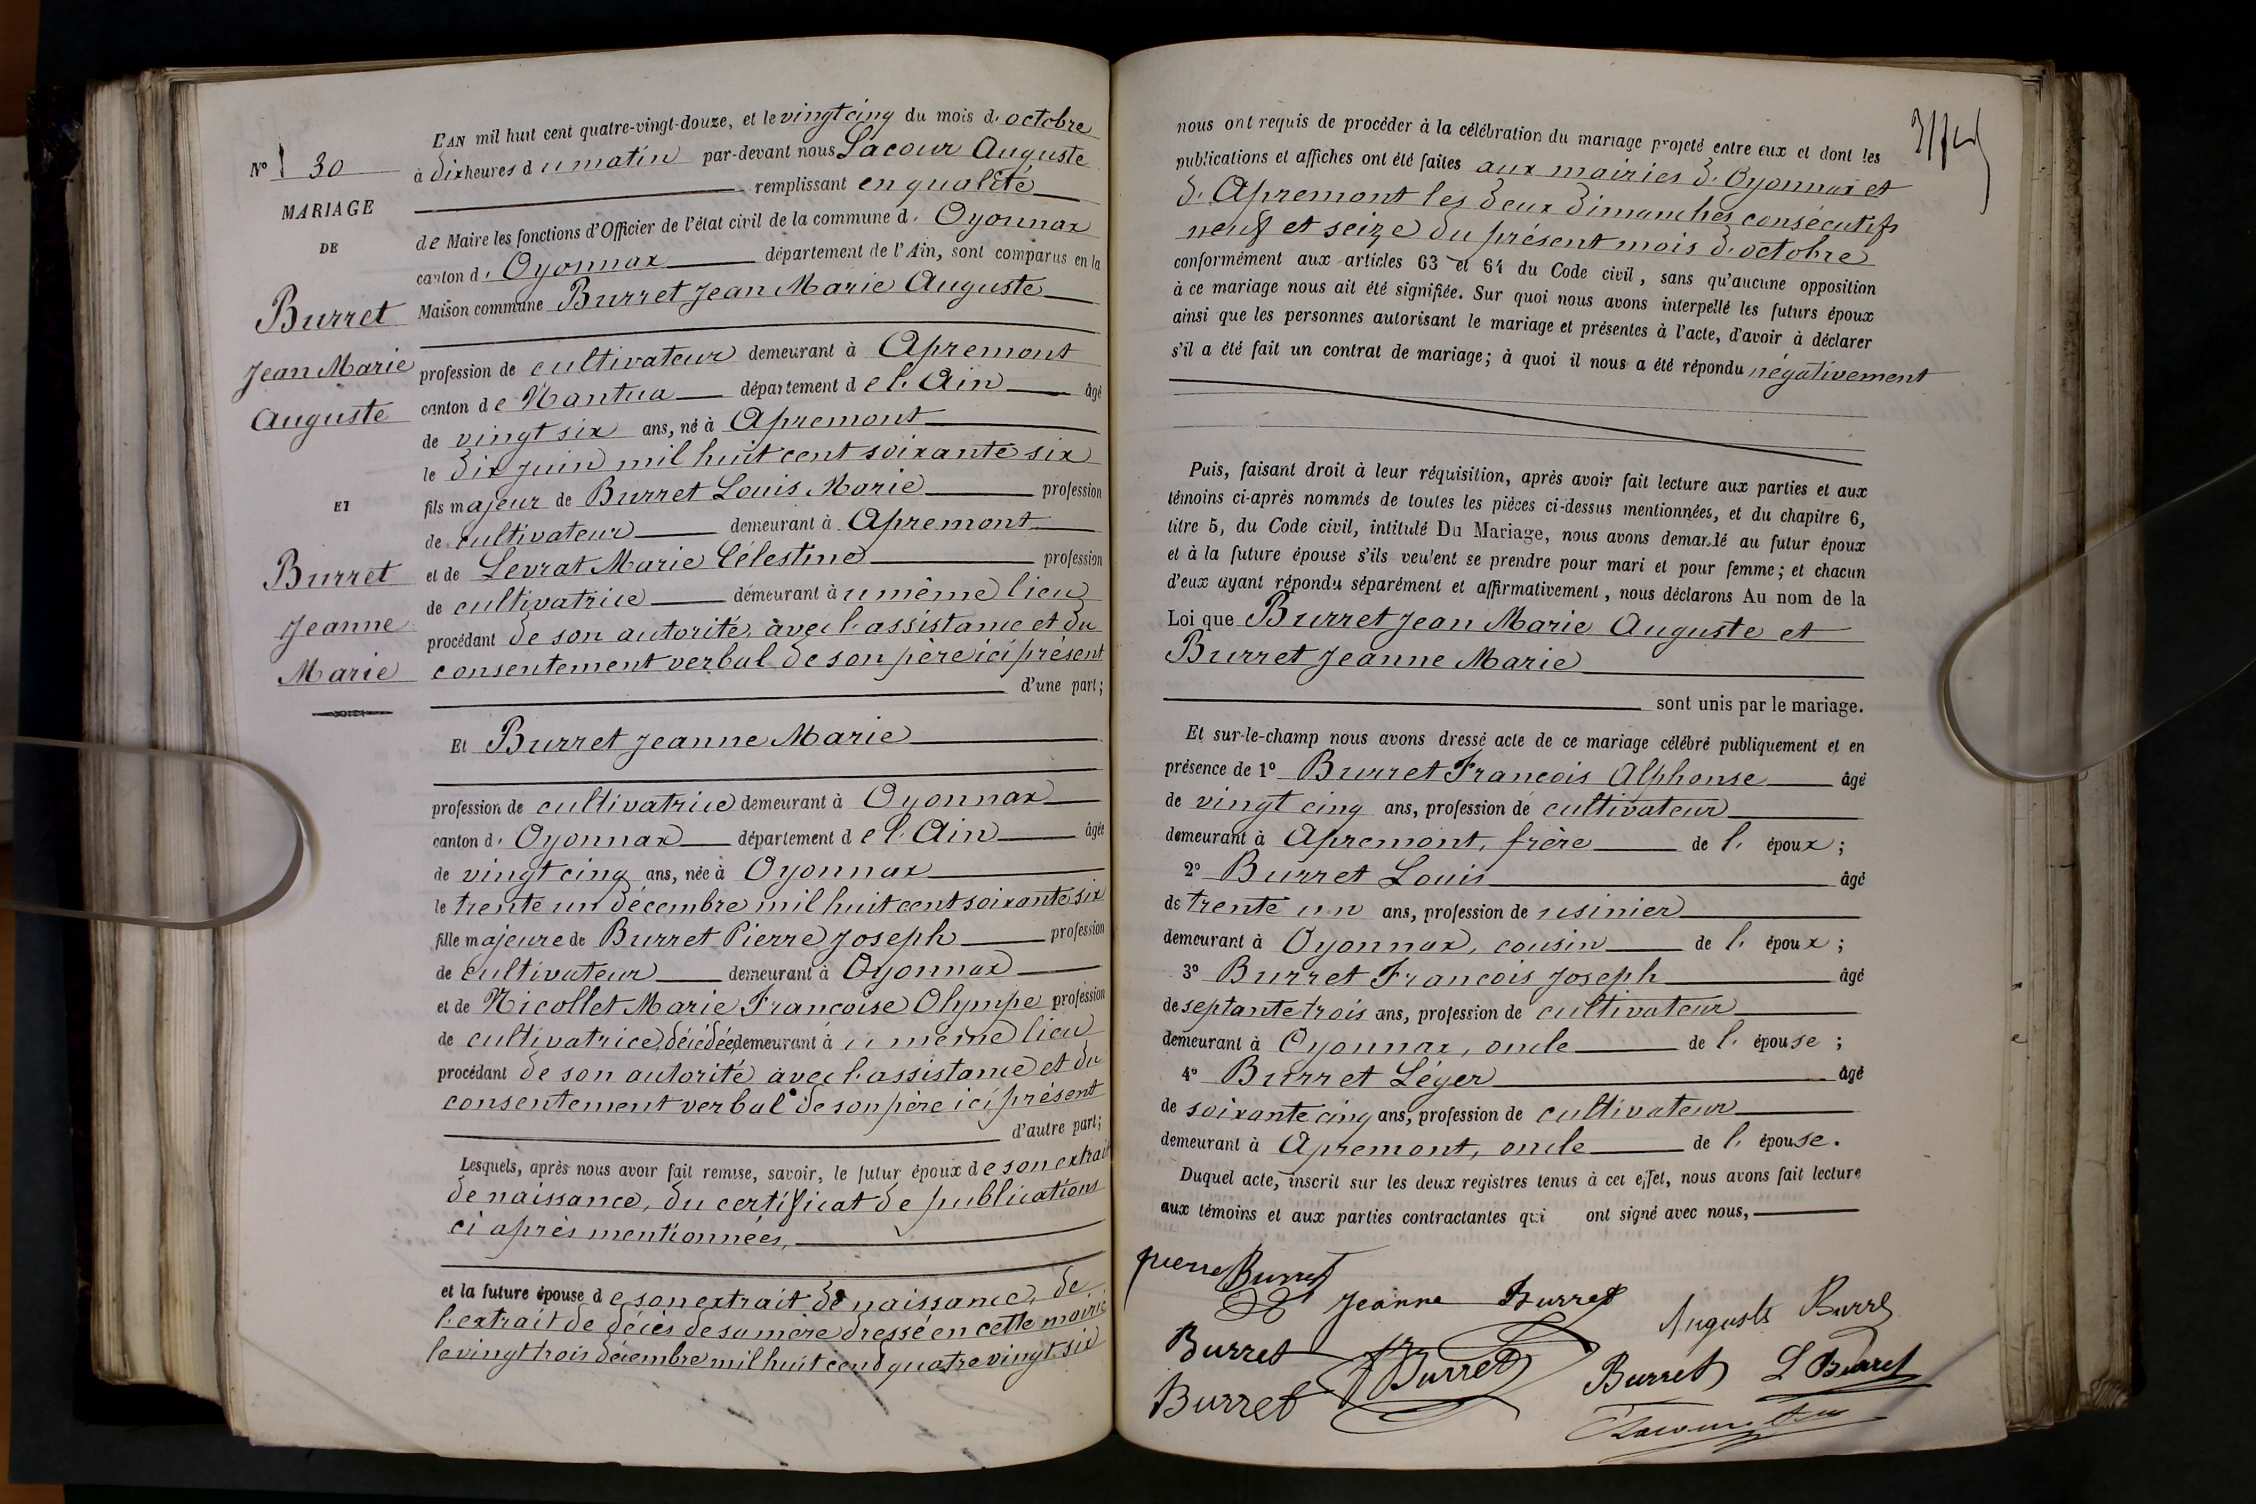 N° 30
MARIAGE
DE
Burret
Jean Marie
Auguste
ET
Burret
Jeanne
Marie
L'AN mil huit cent quatre-vingt-douze, et le vingt cinq du mois d'octobre
à dix heures du matin par-devant nous Lacour Auguste
remplissant en qualité
de Maire les fonctions d'Officier de l'état civil de la commune d'Oyonnax
canton d'Oyonnax département de l'Ain, sont comparus en la
Maison commune Burret Jean Marie Auguste
profession de cultivateur demeurant à Apremont
canton de Nantua département de l'Ain âgé
de vingt six ans, né à Apremont
le dix juin mil huit cent soixante six
fils majeur de Burret Louis Marie profession
de cultivateur demeurant à Apremont
et de Levrat Marie Célestine profession
de cultivatrice demeurant au même lieu
procédant de son autorité avec l'assistance et du
consentement verbal de son père ici présent
d'une part;
Et Burret Jeanne Marie
profession de cultivatrice demeurant à Oyonnax
canton d'Oyonnax département de l'Ain âgée
de vingt cinq ans, née à Oyonnax
le trente un décembre mil huit cent soixante six
fille majeure de Burret Pierre Joseph profession
de cultivateur demeurant à Oyonnax
et de Nicollet Marie Françoise Olympe profession
de cultivatrice, décédée demeurant au même lieu
procédant de son autorité avec l'assistance et du
consentement verbal de son père ici présent
d'autre part;
Lesquels, après nous avoir fait remise, savoir, le futur époux de son extrait
de naissance, du certificat de publications
ci après mentionnées,
et la future épouse de son extrait de naissance, de
l'extrait de décès de sa mère dressé en cette mairie
le vingt trois décembre mil huit cent quatre vingt six
nous ont requis de procéder à la célébration du mariage projeté entre eux et dont les
publications et affiches ont été faites aux mairies d'Oyonnax et
d'Apremont les deux dimanches consécutifs
neuf et seize du présent mois d'octobre
conformément aux articles 63 et 64 du Code civil, sans qu'aucune opposition
à ce mariage nous ait été signifiée. Sur quoi nous avons interpellé les futurs époux
ainsi que les personnes autorisant le mariage et présentes à l'acte, d'avoir à déclarer
s'il a été fait un contrat de mariage; à quoi il nous a été répondu négativement
Puis, faisant droit à leur réquisition, après avoir fait lecture aux parties et aux
témoins ci-après nommés de toutes les pièces ci-dessus mentionnées, et du chapitre 6,
titre 5, du Code civil, intitulé Du Mariage, nous avons demandé au futur époux
et à la future épouse s'ils veulent se prendre pour mari et pour femme; et chacun
d'eux ayant répondu séparément et affirmativement, nous déclarons Au nom de la
Loi que Burret Jean Marie Auguste et
Burret Jeanne Marie
sont unis par le mariage.
Et sur-le-champ nous avons dressé acte de ce mariage célébré publiquement et en
présence de 1° Burret François Alphonse âgé
de vingt cinq ans, profession de cultivateur
demeurant à Apremont, frère de l'époux;
2° Burret Louis âgé
de trente un ans, profession de usinier
demeurant à Oyonnax, cousin de l'époux;
3° Burret François Joseph âgé
de septante trois ans, profession de cultivateur
demeurant à Oyonnax, oncle de l'épouse;
4° Burret Léger âgé
de soixante cinq ans, profession de cultivateur
demeurant à Apremont, oncle de l'épouse.
Duquel acte, inscrit sur les deux registres tenus à cet effet, nous avons fait lecture
aux témoins et aux parties contractantes qui ont signé avec nous,
pierre Burret
Jeanne Burret
Auguste Burret
Burret
Burret
Burret
L Burret
Burret